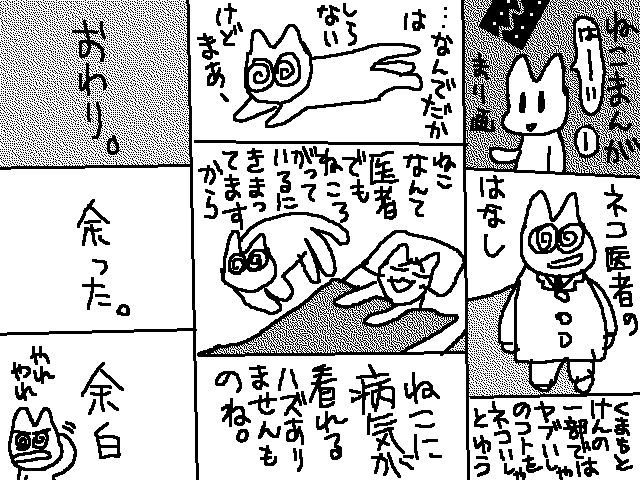 ねこまんが
はーい
①
まり画
ネコ医者の
はなし
くまもと
けんの
一部では
ヤブいしゃ
のコトを
ネコいしゃ
とゆう
…なんでだか
は
しら
ない
けど
まあ、
ねこ
なんて
医者
でも
ねころ
がって
いるに
きまっ
てます
から
ねこに
病気が
看れる。
ハズあり
ませんも
のね。
おわり。
余った。
余白
やれ
やれ